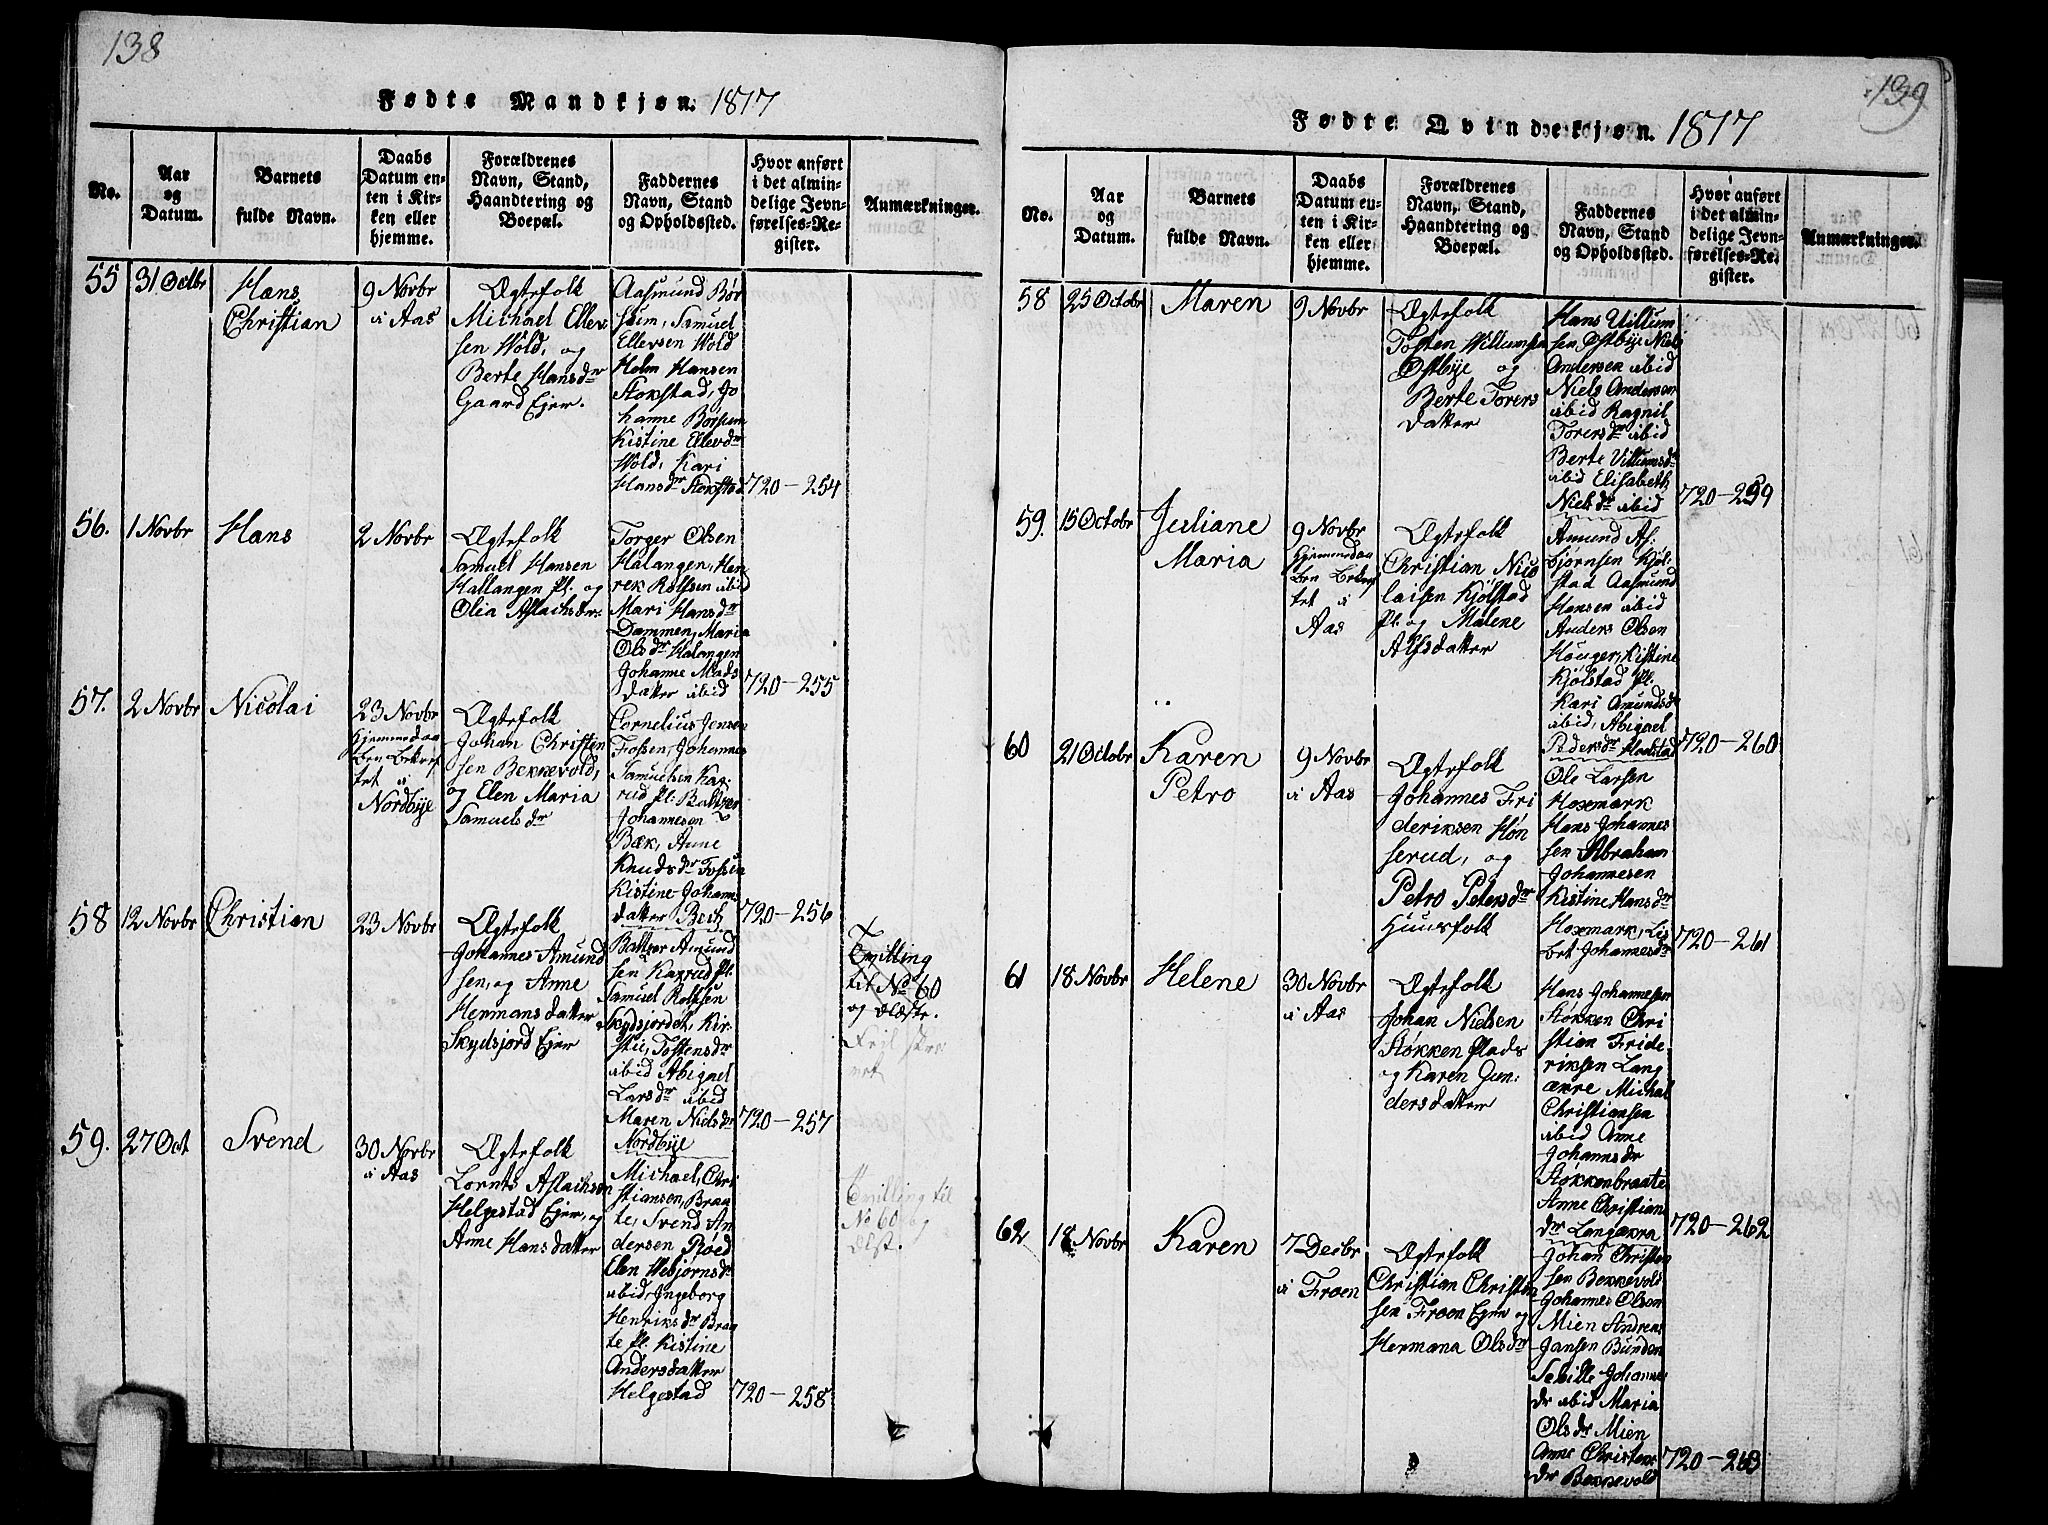 138
Fødte Mandkjøn. 1817
No.
Aar
og
Datum.
Barnets
fulde Navn.
Daabs
Datum en-
ten i Kir-
ken eller
hjemme.
Forældrenes
Navn, Stand,
Haandtering og
Boepæl.
Faddernes
Navn, Stand
og Opholdssted.
Hvor anført
i det almin-
delige Jevn-
førelses-Re-
gister.
Anmærkninger.
55
31 Octbr
Hans
Christian
9 Novbr
i Aas
Ægtefolk
Michael Ellev
sen Wold, og
Berte Hansdr
Gaard Ejer.
Aasmund Bør
sum, Samuel
Ellevsen Wold
Holm Hansen
Stokstad, Jo
hanne Børsum
Kistine Ellevdr
Wold, Kari
Hansdr Stokstad
720-254
56.
1 Novbr
Hans
2 Novbr
Ægtefolk
Samuel Hansen
Hallangen Pl. og
Olia Aslachsdr.
Torger Olsen
Halangen, Hen
rek Rolfsen ibid
Mari Hansdr
Dammen, Maria
Olsdr Halangen
Johanne Mads
datter ibid
720-255
57.
2 Novbr
Nicolai
23 Novbr
Hjemmedaa
ben Bekræf
tet i
Nordbye
Ægtefolk
Johan Christen
sen Bekkevold,
og Elen Maria
Samuelsdr
Cornelius Jensen
Fossen, Johannes
Samuelsen Kag-
rud Pl. Baltzer
Johannesen
Bæk, Anne
Knudsdr Fossen
Kistine Johanns
datter Bech
720-256
58
12 Novbr
Christian
23 Novbr
Ægtefolk
Johannes Amund
sen, og Anne
Hermansdatter
Skydsjord Ejer
Baltzer Amund
sen Kaxrud Pl.
Samuel Rolfsen
Skydsjordet, Kir-
stie, Tostensdr
ibid Abigael
Larsdr ibid
Maren Nielsdr
Nordbye
720-257
Tvilling
til No 60
og ældste.
Feil skre
vet
59.
27 Oct
Svend
30 Novbr
i Aas
Ægtefolk
Lornts Aslachsen
Helgestad Ejer, og
Anne Hansdatter
Michael, Chri
stiansen, Braa
te, Svend An
dersen Røed
Elen Webjørnsdr
ibid, Ingeborg
Henriksdr Braa
te Pl. Kistine
Andersdatter
Helgestad
720-258
Tvilling til
No 60 og
ælst.
139
Fødte Qvindekjøn. 1817
No.
Aar
og
Datum.
Barnets
fulde Navn.
Daabs
Datum en-
ten i Kir-
ken eller
hjemme.
Forældrenes
Navn, Stand,
Haandtering og
Boepæl.
Faddernes
Navn, Stand
og Opholdssted.
Hvor anført
i det almin-
delige Jevn-
førelses-Re-
gister.
Anmærkninger.
58
25 Octobr
Maren
9 Novbr
Ægtefolk
Tosten Willumsen
Østbye og
Berte Torers
datter
Hans Villum
sen Østbye Niels
Andersen ibid
Niels Andersen
ibid Ragnil
Torersdr ibid
Berte Villumsdr
ibid Elisabeth
Nielsdr ibid
720-259
59.
15 Octobr
Juliane
Maria
9 Novbr
Hjemmedaa
ben Bekræf
tet i
Aas
Ægtefolk
Christian Nico
laisen Kjølstad
Pl. og Malene
Alfsdatter
Amund As-
bjørnsen Kjøl-
stad Aasmund
Hansen ibid
Anders Olsen
Houger, Kistine
Kjølstad Pl.
Kari Amundsdr
ibid, Abigael
Pedersdr
720-260
60
21 Octobr
Karen
Petro
9 Novbr
i Aas
Ægtefolk
Johannes Fri
deriksen Høn
serud, og
Petro Petersdr
Huusfolk
Ole Larsen
Hoxmark
Hans Johannes
sen Abraham
Johannesen
Kistine Hansdr
Hoxmark, Lis
bet Johannesdr
720-261
61
18 Novbr
Helene
30 Novbr
i Aas
Ægtefolk
Johan Nielsen
Støkken Plads
og Karen Gun-
dersdatter
Hans Johannesen
Støkken Chri
stian Fride
riksen Lang
ækre Michal
Christiansen
ibid Anne
Johannsdr
Støkkenbraate
Anne Christian
dr Langækra
720-262
62
18 Novbr
Karen
7 Decbr
i Froen
Ægtefolk
Christian Christen
sen Froen Ejer og
Hermana Olsdr
Johan Christen
sen Bekkevold
Johannes Olsen
Mien Andreas
Jansen Bunden
Sebille Johannes
dr ibid Maria
Olsdr Mien
Anne Christens
dr Bekkevold
720-263